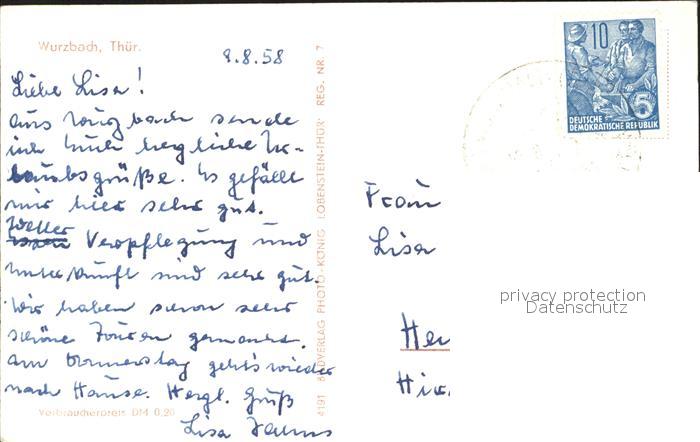 Wurzbach, Thür.
8.8.58
Liebe Lisa!
Aus Wurzbach sende
ich Euch herzliche Ur-
laubsgrüße. Es gefällt
mir hier sehr gut.
Wetter
Verpflegung und
Unterkunft sind sehr gut.
Wir haben schon sehr
schöne Touren gemacht.
Am Donnerstag geht's wieder
nach Hause. Herzl. Gruß
Lisa
Verbraucherpreis DM 0,20
4191 BILDVERLAG PHOTO-KÖNIG LOBENSTEIN-THÜR. REG. NR. 7
10
5
DEUTSCHE
DEMOKRATISCHE REPUBLIK
Frau
Lisa
privacy protection
Datenschutz